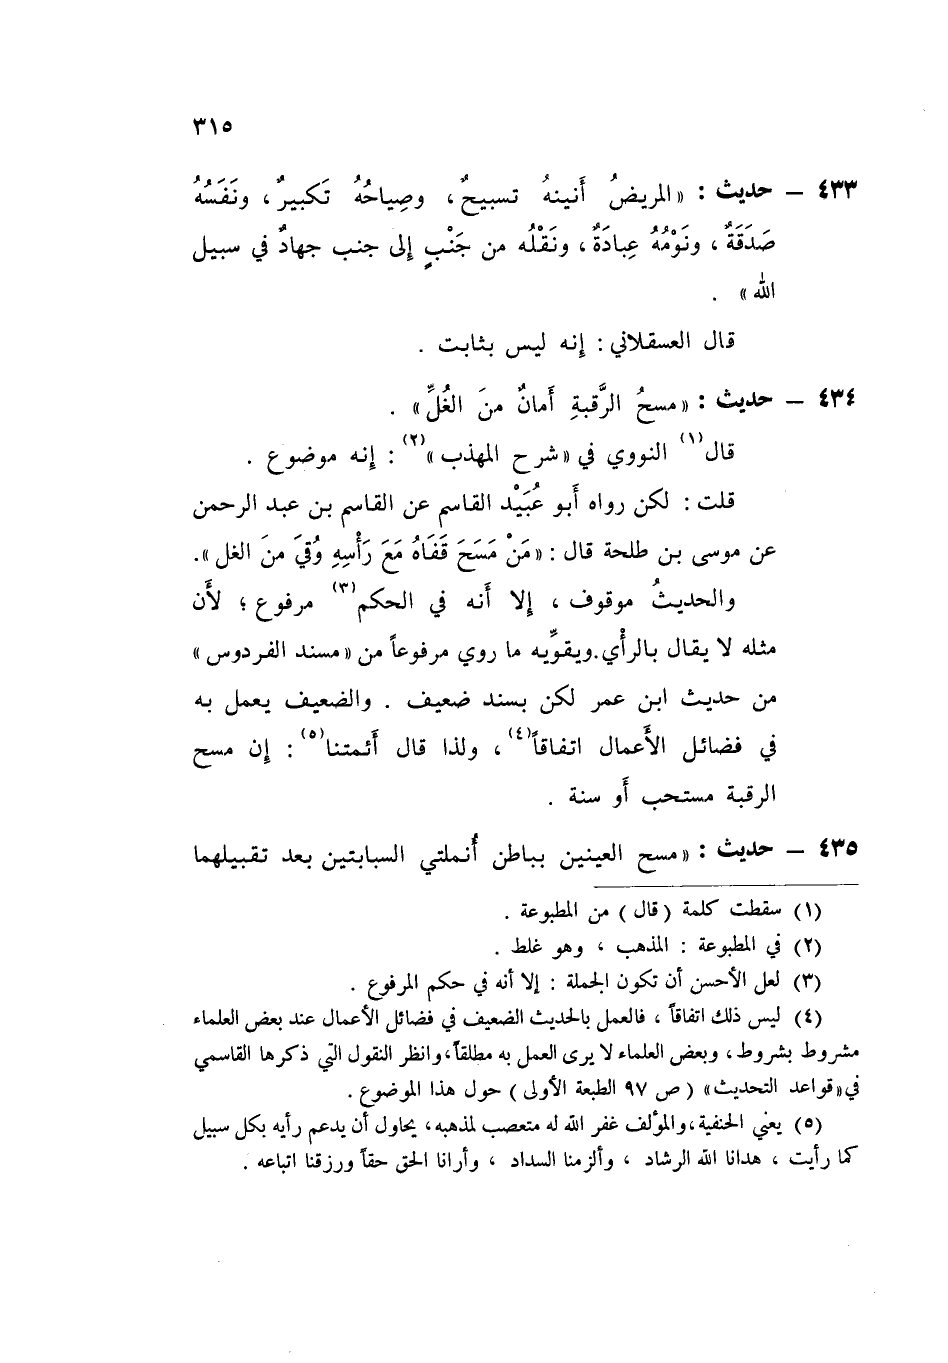 ٣١٥
٤٣٣ – حديث : «المريضُ أَنينهُ تسبيحٌ، وصِياحُهُ تَكبيرٌ، ونَفَسُهُ
صَدَقَةٌ، ونَوْمُهُ عِبادَةٌ، ونَقْلُه من جَنْبٍ إِلى جنب جهادٌ في سبيل
الله» .
قال العسقلاني : إِنه ليس بثابت .
٤٣٤ – حديث : «مسحُ الرَّقبةِ أَمانٌ منَ الغُلِّ» .
قال(١) النووي في «شرح المهذب»(٢) : إِنه موضوع .
قلت : لكن رواه أَبو عُبَيْد القاسم عن القاسم بن عبد الرحمن
عن موسى بن طلحة قال : «مَنْ مَسَحَ قَفَاهُ مَعَ رَأْسِهِ وُقيَ منَ الغل».
والحديثُ موقوف ، إِلا أَنه في الحكم(٣) مرفوع ؛ لأَن
مثله لا يقال بالرأْي.ويقوِّيه ما روي مرفوعاً من «مسند الفردوس»
من حديث ابن عمر لكن بسند ضعيف . والضعيف يعمل به
في فضائل الأَعمال اتفاقاً(٤) ، ولذا قال أَئمتنا(٥) : إِن مسح
الرقبة مستحب أَو سنة .
٤٣٥ – حديث : «مسح العينين بباطن أُنملتي السبابتين بعد تقبيلهما
(١) سقطت كلمة (قال) من المطبوعة .
(٢) في المطبوعة : المذهب ، وهو غلط .
(٣) لعل الأحسن أن تكون الجملة : إلا أنه في حكم المرفوع .
(٤) ليس ذلك اتفاقاً ، فالعمل بالحديث الضعيف في فضائل الأعمال عند بعض العلماء
مشروط بشروط، وبعض العلماء لا يرى العمل به مطلقاً،وانظر النقول التي ذكرها القاسمي
في«قواعد التحديث» (ص ٩٧ الطبعة الأولى) حول هذا الموضوع .
(٥) يعني الحنفية،والمؤلف غفر الله له متعصب لمذهبه، يحاول أن يدعم رأيه بكل سبيل
كما رأيت ، هدانا الله الرشاد ، وألزمنا السداد ، وأرانا الحق حقاً ورزقنا اتباعه .